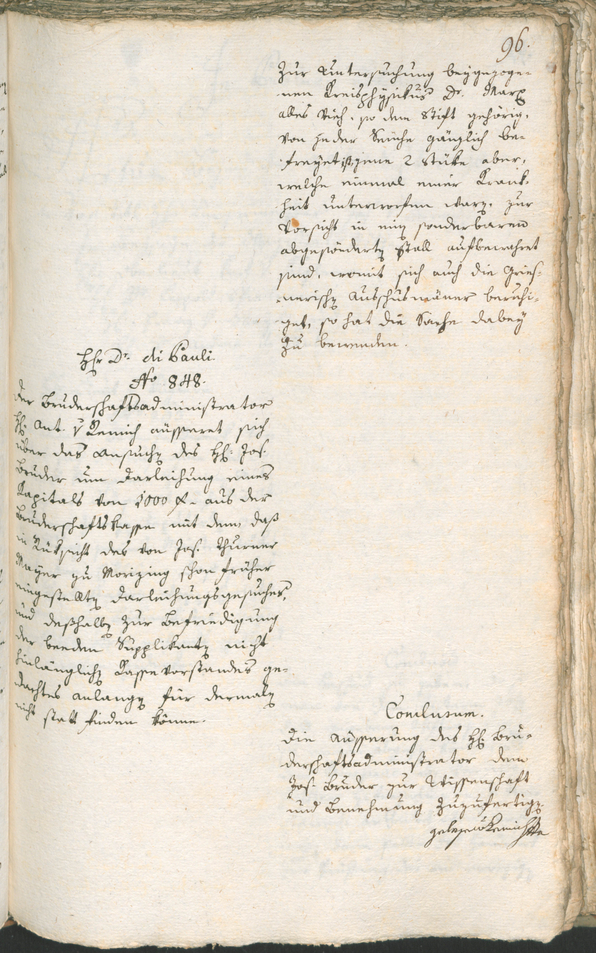 96.
Zur Untersuchung beygezoge-
nen Kreisphysikus Dr. Marx
alles Vieh, so dem Stift gehörig,
von jeder Seuche gänzlich be-
freyet ist, jene 2 Stüke aber,
welche einmal einer Krank-
heit unterworfen warn, zur
Vorsicht in ein sonderbaren
abgesönderten Stall aufbewahret
sind, womit sich auch die Gries-
nerischn Ausschusmänner beruhi-
get, so hat die Sache dabey
zu bewenden.
Hr Dr. di Pauli
No 848.
Der Bruderschaftsadministrator
H. Ant. v Remich äusseret sich
über das Ansuchn des H. Jos.
Bruder um Darleihung eines
Kapitals von 1000 f. aus der
Bruderschaftskasse mit dem daß
in Rüksicht des von Jos. Thurner
Mayer zu Morizing schon früher
eingestelltn Darleihungsgesuches,
und deßhalbn zur Befriedigung
der beeden Supplikantn nicht
hinlänglichn Kassevorstandes ge-
dachtes Anlangen für dermaln
nicht statt finden könne.
Conclusum.
Die Äusserung des H. Bru-
derschaftsadministrator dem
Jos. Bruder zur Wissenschaft
und Benehmung zuzufertign.